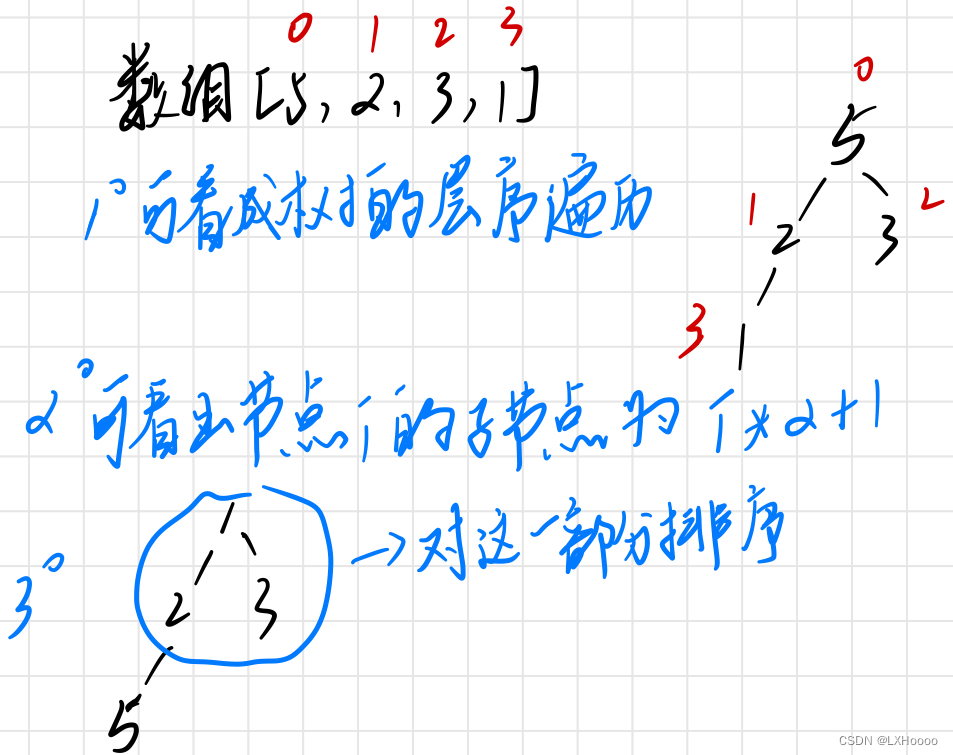 0 1 2 3
数组[5, 2, 3, 1]
0
5
1° 可看成权据的层序遍历
1 2
2 3
3
1
2° 可看出节点i的子节点为 i*2+1
3° 1
2 3
→对这一部分排序
5
CSDN @LXHoooo